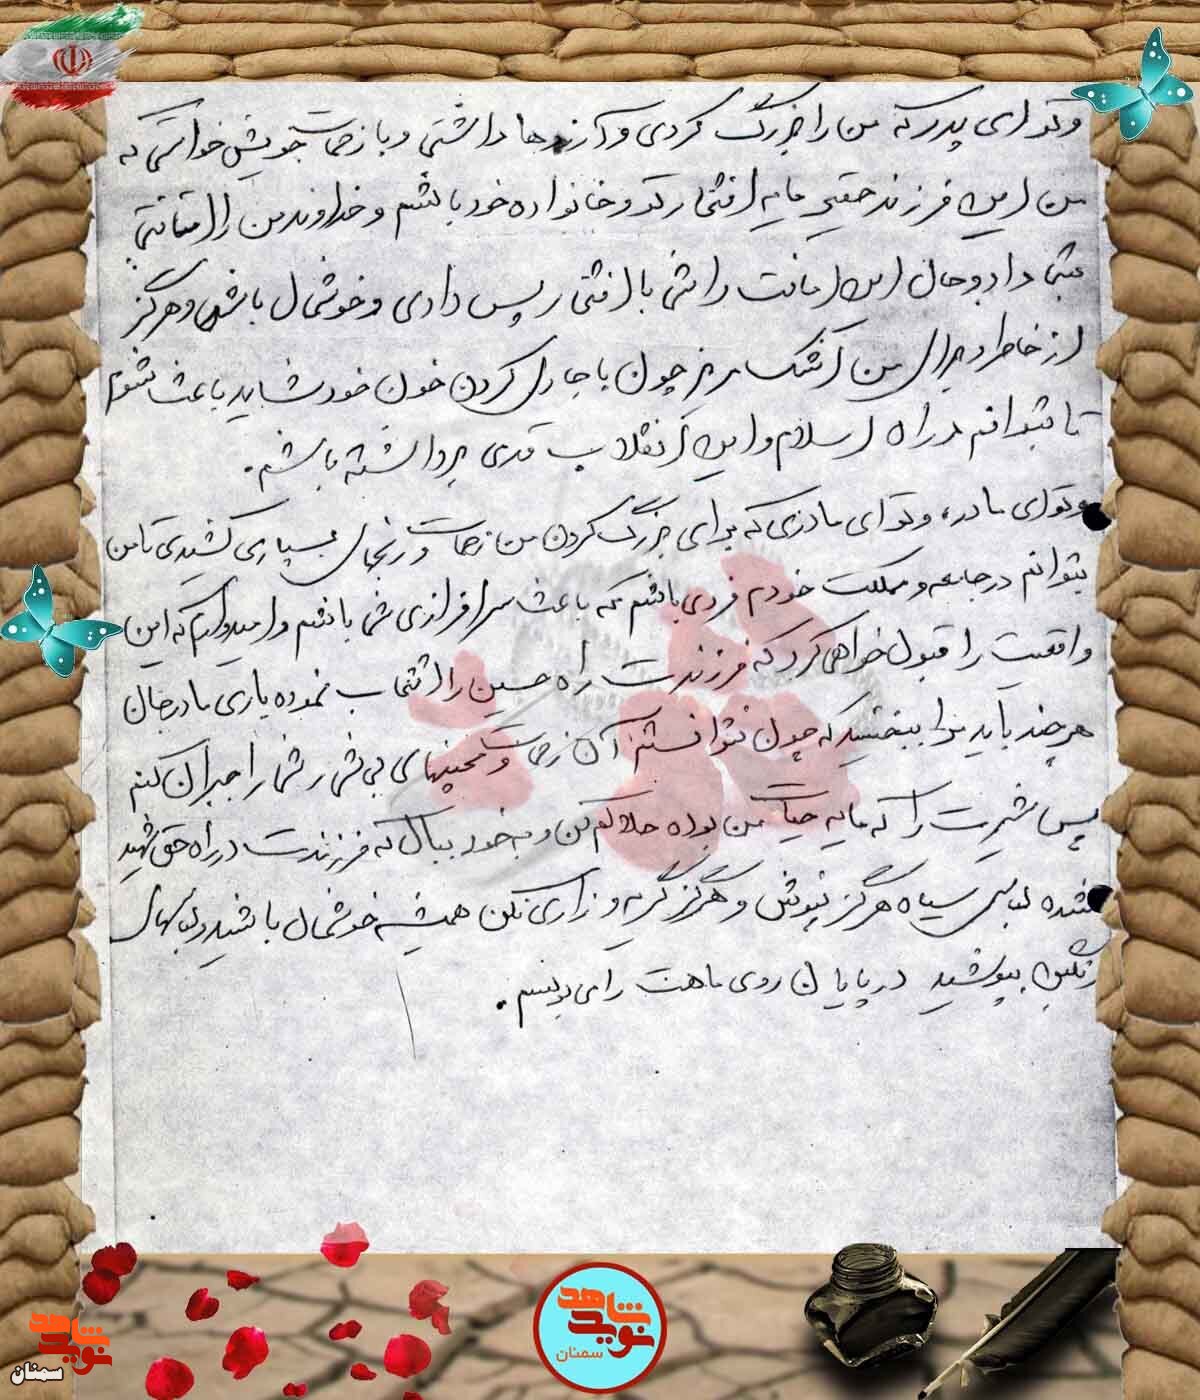 و تو ای پدر که من را بزرگ کردی و آرزوها داشتی و با زحمت خویش خواستی که
من این فرزند حقیر مایه افتخار تو و خانواده خود باشم و خداوند من را امانتی
بشما داد و حال این امانت را شما با افتخار پس دادی و خوشحال باش و هرگز
از خاطر برای من اشک مریز چون با جاری کردن خون خود شاید باعث شوم
تا بتوانم در راه اسلام و این انقلاب قدمی برداشته باشم.
و تو ای مادر، و تو ای مادری که برای بزرگ کردن من زحمات و رنجهای بسیاری کشیدی تا من
بتوانم در جامعه و مملکت خودم فردی باشم که باعث سرافرازی شما باشم و امیدوارم که این
واقعیت را قبول خواهی کرد که فرزندت راه حسین را انتخاب نموده یاری مادرجان
هر چند باید مرا ببخشید که چون نتوانستم آن زحمات و محبتهای بی شمار شما را جبران کنم
پس شیرت را که مایه حیات من بوده حلالم کن و به خود ببال که فرزندت در راه حق شهید
شده لباس سیاه هرگز نپوش و هرگز گریه و زاری نکن همیشه خوشحال باشید و لباسهای
رنگین بپوشید در پایان روی ماهت را می بوسم.
نوید شاهد
سمنان
نوید شاهد
سمنان